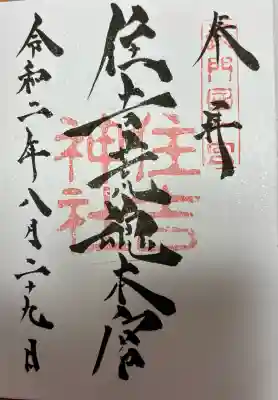 奉拝
住吉荒魂本宮
住吉神社
令和二年八月二十九日